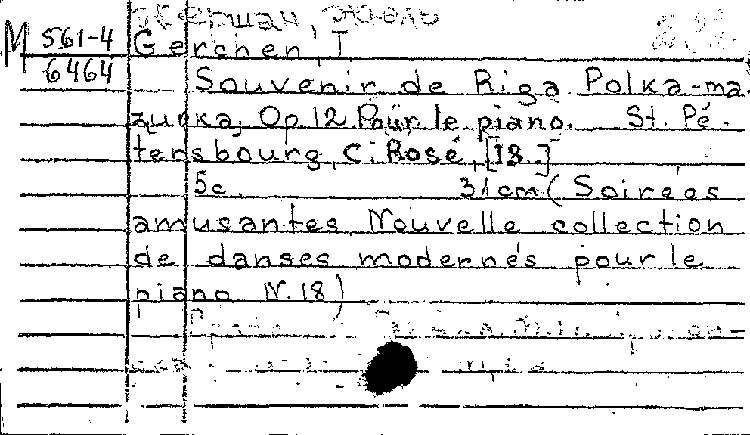 M 561-4
6464
Gerchen, I.
Souvenir de Riga. Polka-ma-
zurka, Op.12. Pour le piano. St. Pé-
tersbourg, C. Rosé, [18..]
5c. 31cm (Soirées
amusantes Nouvelle collection
de danses modernes pour le
piano N.18)